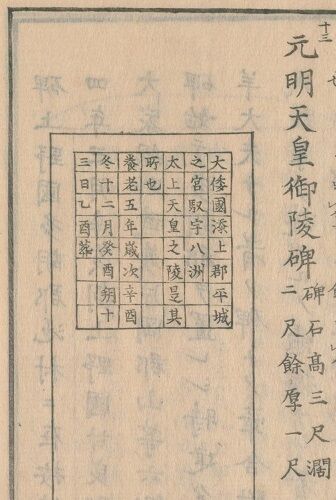 十三
元明天皇御陵碑
碑石高三尺濶
二尺餘厚一尺
大倭國添上郡平城
之宮馭宇八洲
太上天皇之陵是其
所也
養老五年歲次辛酉
冬十二月癸酉朔十
三日乙酉葬